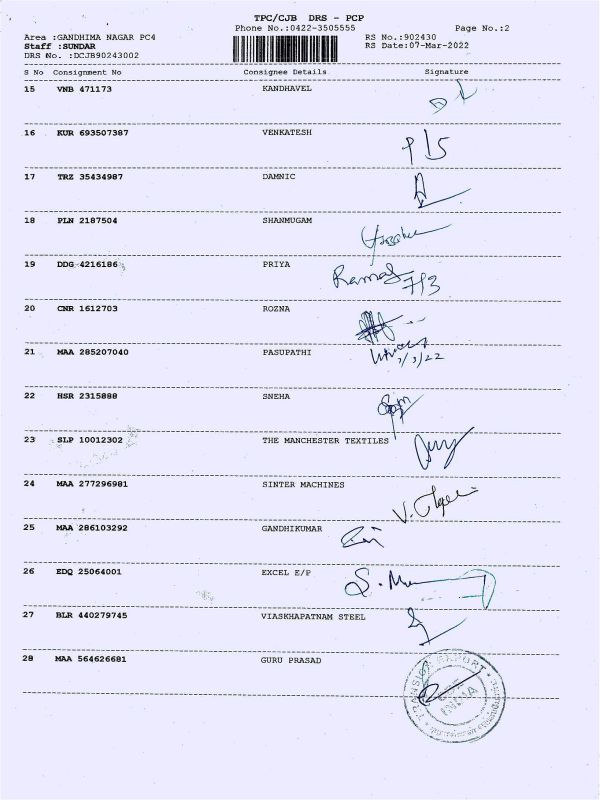 TPC/CJB DRS - PCP
Phone No.:0422-3505555 Page No.:2
Area :GANDHIMA NAGAR PC4 RS No.:902430
Staff :SUNDAR RS Date:07-Mar-2022
DRS No. :DCJB90243002
S No Consignment No Consignee Details Signature
15 VNB 471173 KANDHAVEL
16 KUR 693507387 VENKATESH
17 TRZ 35434987 DAMNIC
18 PLN 2187504 SHANMUGAM
19 DDG 4216186 PRIYA
7/3
20 CNR 1612703 ROZNA
21 MAA 285207040 PASUPATHI
22 HSR 2315888 SNEHA
23 SLP 10012302 THE MANCHESTER TEXTILES
24 MAA 277296981 SINTER MACHINES
25 MAA 286103292 GANDHIKUMAR
26 EDQ 25064001 EXCEL E/P
27 BLR 440279745 VIASKHAPATNAM STEEL
28 MAA 564626681 GURU PRASAD
INDIA